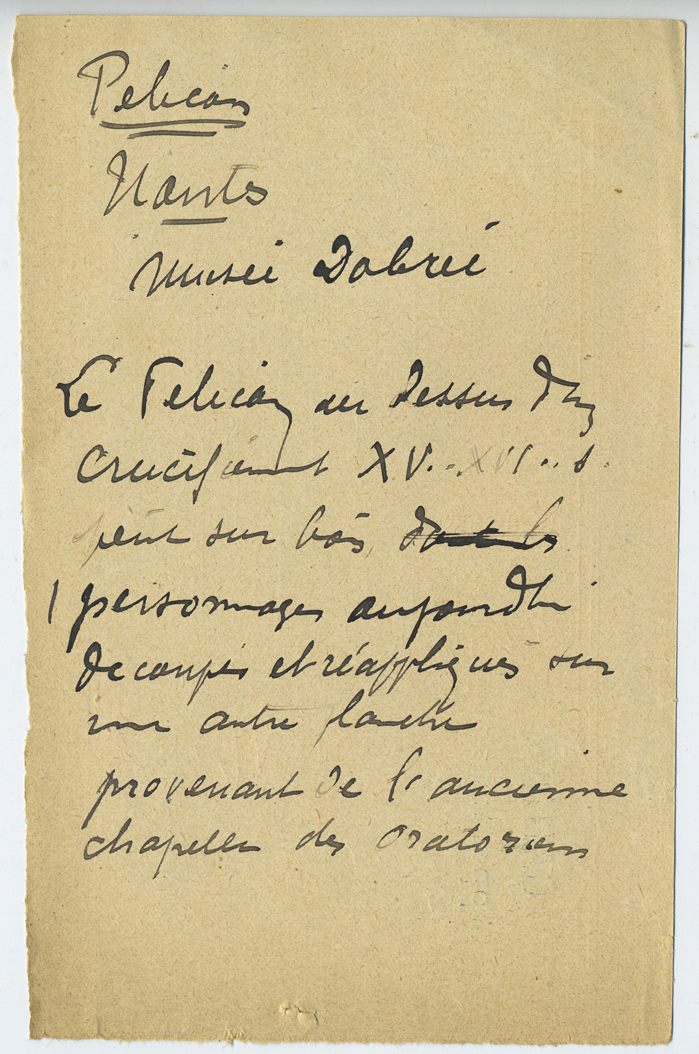 Pelican
Nantes
Musée Dobrée
Le Pelican au dessus d'un
crucifiement XV..XVI..s.
peint sur bois, dont les
personnages aujourdhui
decoupés et réappliqués sur
une autre planche
provenant de l'ancienne
chapelle des Oratoriens